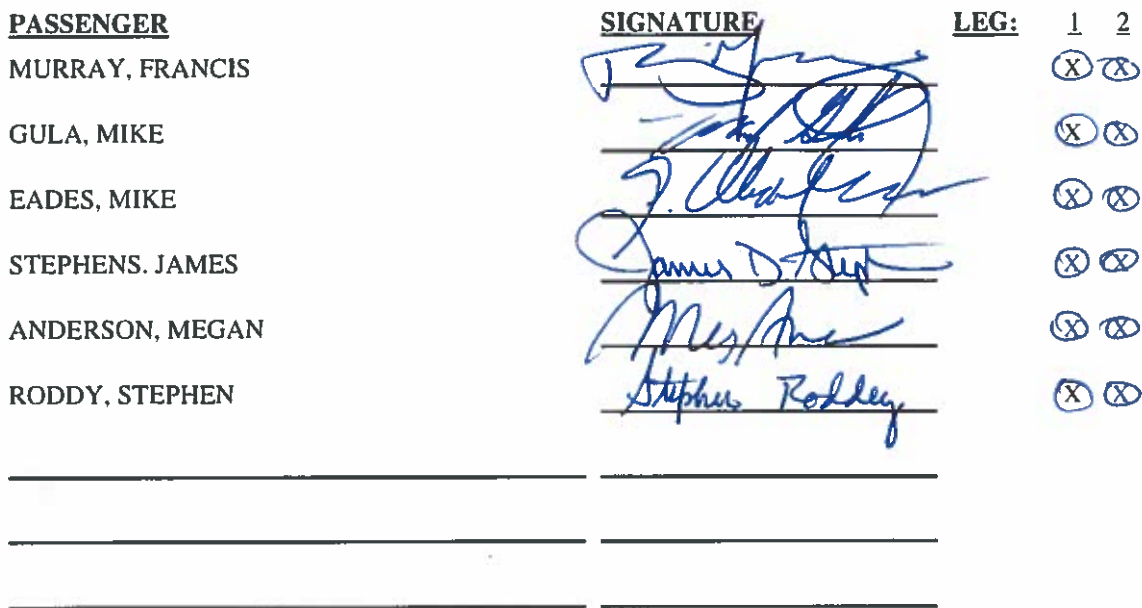 PASSENGER SIGNATURE LEG: 1 2
MURRAY, FRANCIS X X
GULA, MIKE X X
EADES, MIKE X X
STEPHENS. JAMES James D X X
ANDERSON, MEGAN X X
RODDY, STEPHEN Stephen Roddey X X